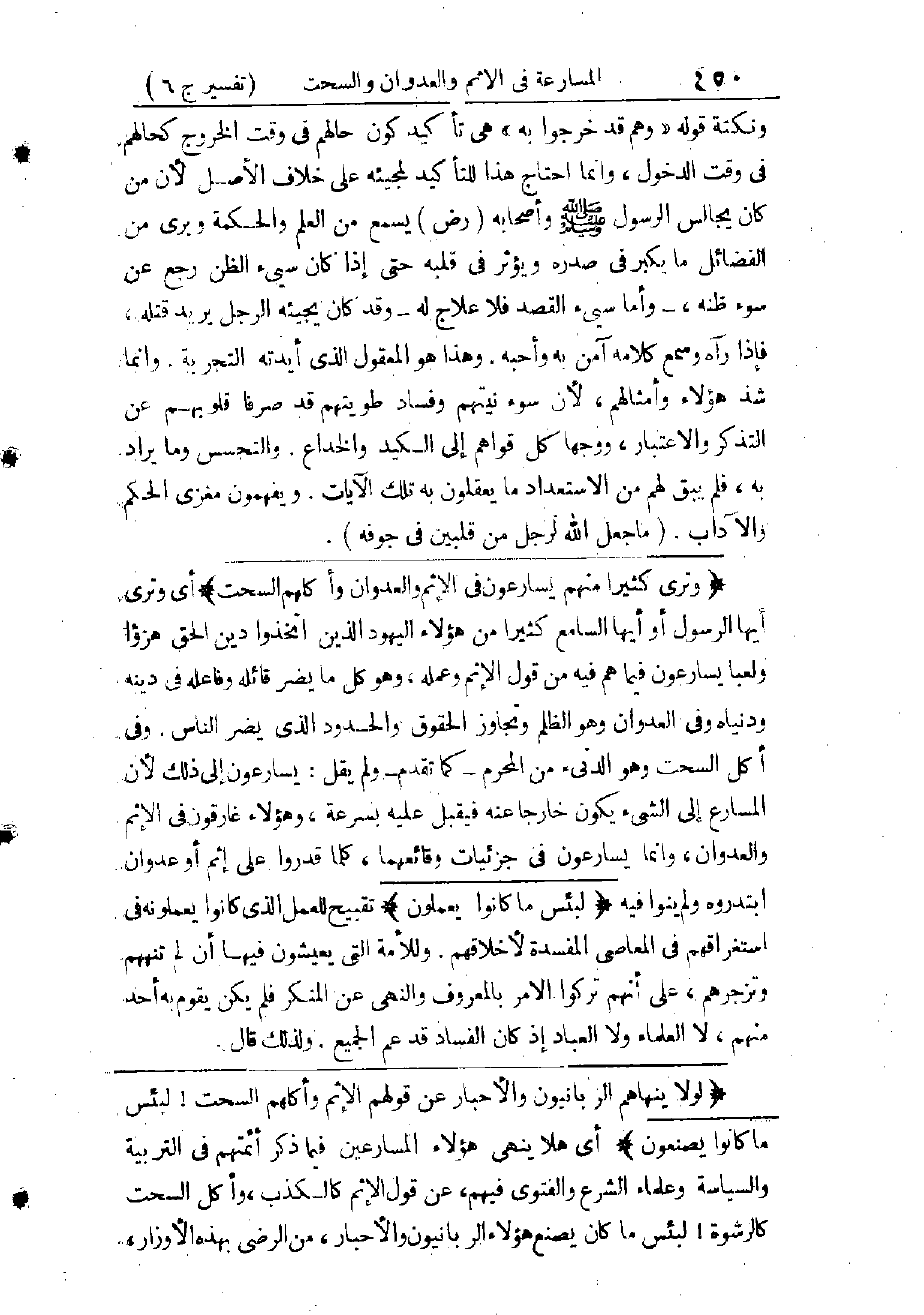 ٤٥٠ المسارعة فى الاثم والعدوان والسحت (تفسير ج ٦)
ونكتة قوله « وهم قد خرجوا به » هى تأ كيد كون حالهم فى وقت الخروج كحالهم
فى وقت الدخول ، وانما احتاج هذا للتأ كيد لمجيئه على خلاف الأصل لأن من
كان يجالس الرسول ﷺ وأصحابه ( رض ) يسمع من العلم والحكمة ويرى من
الفضائل ما يكبر فى صدره ويؤثر فى قلبه حتى إذا كان سيىء الظن رجع عن
سوء ظنه ، ـ وأما سيىء القصد فلا علاج له ـ وقد كان يجيئه الرجل يريد قتله ،
فإذا رآه وسمع كلامه آمن به وأحبه . وهذا هو المعقول الذى أيدته التجربة . وانما
شذ هؤلاء وأمثالهم ، لأن سوء نيتهم وفساد طويتهم قد صرفا قلوبهم عن
التذكر والاعتبار ، ووجها كل قواهم إلى الكيد والخداع . والتجسس وما يراد
به ، فلم يبق لهم من الاستعداد ما يعقلون به تلك الآيات . ويفهمون مغزى الحكم
والآداب . ( ماجعل الله لرجل من قلبين فى جوفه ) .
﴿ وترى كثيرا منهم يسارعون فى الإثم والعدوان وأ كلهم السحت ﴾ أى وترى
أيها الرسول أو أيها السامع كثيرا من هؤلاء اليهود الذين اتخذوا دين الحق هزؤا
ولعبا يسارعون فيما هم فيه من قول الإثم وعمله ، وهو كل ما يضر قائله وفاعله فى دينه
ودنياه وفى العدوان وهو الظلم وتجاوز الحقوق والحدود الذى يضر الناس . وفى
أكل السحت وهو الدنىء من المحرم ـ كما تقدم ـ ولم يقل : يسارعون إلى ذلك لأن
المسارع إلى الشىء يكون خارجا عنه فيقبل عليه بسرعة ، وهؤلاء غارقون فى الإثم
والعدوان ، وانما يسارعون فى جزئيات وقائعهما ، كلما قدروا على إثم أو عدوان
ابتدروه ولم ينوا فيه ﴿ لبئس ما كانوا يعملون ﴾ تقبيح للعمل الذى كانوا يعملونه فى
استغراقهم فى المعاصى المفسدة لأخلاقهم . وللأمة التى يعيشون فيها أن لم تنههم
وتزجرهم ، على أنهم تركوا الامر بالمعروف والنهى عن المنكر فلم يكن يقوم به أحد
منهم ، لا العلماء ولا العباد إذ كان الفساد قد عم الجميع . ولذلك قال .
﴿ لولا ينهاهم الربانيون والأحبار عن قولهم الإثم وأكلهم السحت ! لبئس
ما كانوا يصنعون ﴾ أى هلا ينهى هؤلاء المسارعين فيما ذكر أئمتهم فى التربية
والسياسة وعلماء الشرع والفتوى فيهم ، عن قول الإثم كالكذب ، وأ كل السحت
كالرشوة ! لبئس ما كان يصنع هؤلاء الربانيون والأحبار ، من الرضى بهذه الأوزار ،